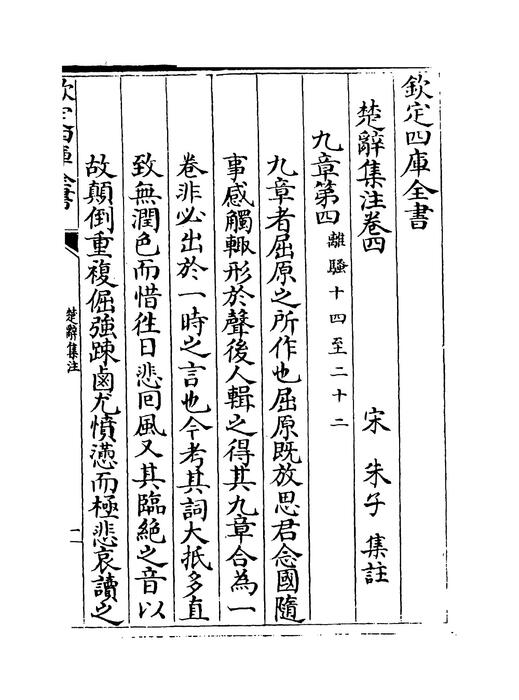 欽定四庫全書
楚辭集注卷四
宋 朱子 集註
九章第四 離騷十四至二十二
九章者屈原之所作也屈原既放思君念國隨
事感觸輙形於聲後人輯之得其九章合為一
卷非必出於一時之言也今考其詞大抵多直
致無潤色而惜徃日悲回風又其臨絶之音以
故顛倒重複倔強踈鹵尤憤懣而極悲哀讀之
欽定四庫全書
楚辭集注